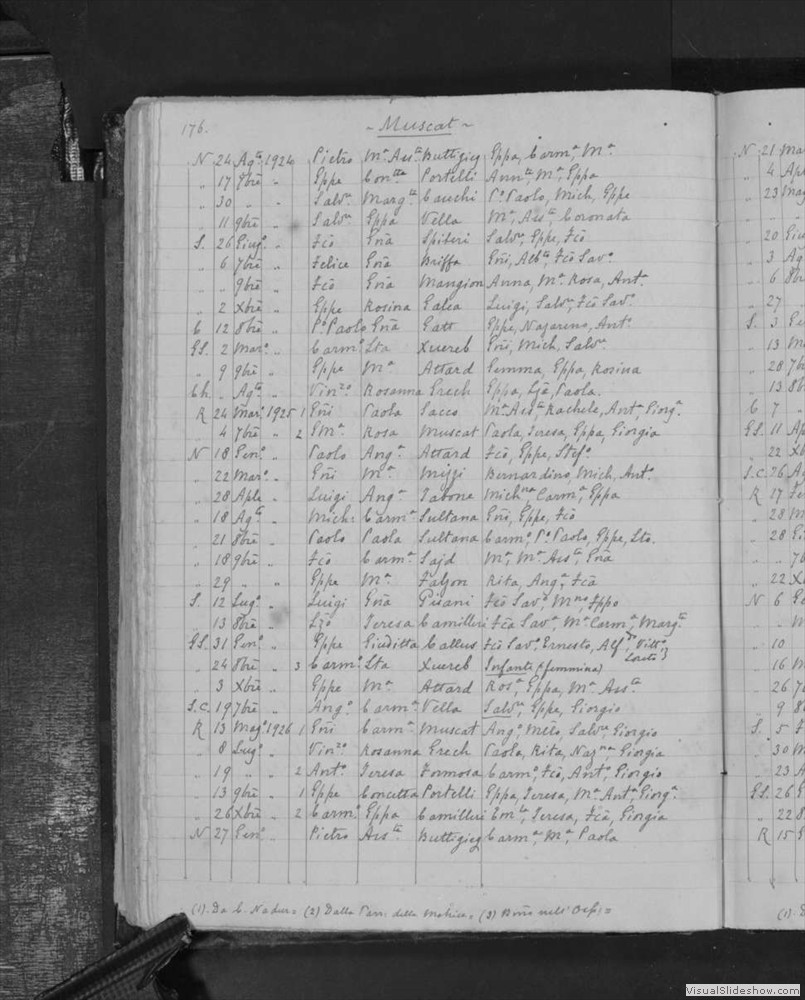 176. ~ Muscat ~
N 24 Agto 1924 Pietro Ma Assta Buttigieg Eppa, Carma, Ma
" 17 7bre " Eppe Contta Portelli Annta, Ma, Eppa
" 30 " " Salvre Margta Cauchi Po Paolo, Mich, Eppe
" 11 9bre " Salvre Eppa Vella Ma, Assta Coronata
S. 26 Giugo " Fco Gna Spiteri Salvre, Eppe, Fco
" 6 7bre " Felice Gna Briffa Gni, Albto, Fco Savo
" " 9bre " Fco Gna Mangion Anna, Ma Rosa, Anto
" 2 Xbre " Eppe Rosina Galea Luigi, Salvre, Fco Savo
C 12 8bre " Po Paolo Gna Gatt Eppe, Nazareno, Anto
GS. 2 Maro " Carmo Sta Xuereb Gni, Mich, Salvre
" 9 9bre " Eppe Ma Attard Gemma, Eppa, Rosina
Ch. " Agto " Vinzo Rosanna Grech Eppa, Lza, Paola
R 24 Maro 1925 1 Gni Paola Sacco Ma Assta, Rachele, Anta, Giorga
" 4 7bre " 2 Gma Rosa Muscat Paola, Teresa, Eppa, Giorgia
N 18 Geno " Paolo Anga Attard Fco, Eppe, Stefo
" 22 Maro " Gni Ma Mizzi Bernardino, Mich, Anto
" 28 Aple " Luigi Anga Tabone Michna, Carma, Eppa
" 18 Agto " Mich: Carma Sultana Gni, Eppe, Fco
" 21 8bre " Paolo Paola Sultana Carmo, Po Paolo, Eppe, Sto.
" 18 9bre " Fco Carma Sajd Ma, Ma Assta, Gna
" 29 " " Eppe Ma Falzon Rita, Anga, Fca
S. 12 Lugo " Luigi Gna Pisani Fco Savo, Mno, Ippo
" 13 8bre " Lzo Teresa Camilleri Fca Sava, Ma Carma, Margta
GS. 31 Geno " Eppe Giuditta Callus Fco Savo, Ernesto, Alfdo, Vitto Loreto
" 24 8bre " 3 Carmo Sta Xuereb Infante (femmina)
" 3 Xbre " Eppe Ma Attard Rosa, Eppa, Ma Assta
S.C. 19 7bre " Ango Carma Vella Salvre, Eppe, Giorgio
R 13 Mago 1926 1 Gni Carma Muscat Ango, Melo, Salvre Giorgio
" 8 Lugo " Vinzo Rosanna Grech Paola, Rita, Nazna, Giorgia
" 19 " " 2 Anto Teresa Formosa Carmo, Fco, Anto, Giorgio
" 13 9bre " 1 Eppe Concetta Portelli Eppa, Teresa, Ma Anta, Giorga
" 26 Xbre " 2 Carmo Eppa Camilleri Emla, Teresa, Fca, Giorgia
N 27 Geno " Pietro Assta Buttigieg Carma, Ma, Paola
(1). Da C. Nadur = (2) Dalla Parr: della Matrice = (3)
N 21
" 4
" 23
" 20
" 3
" 6
" 27
S. 3
" 13
" 28
" 13
C 7
GS. 11
" 22
S.C. 26
R 17
" 28
" 28
" 22
N 6
" 10
" 16
" 26
" 9
S. 5
" 30
" 23
GS. 26
" 22
R 15
VisualSlideshow.com